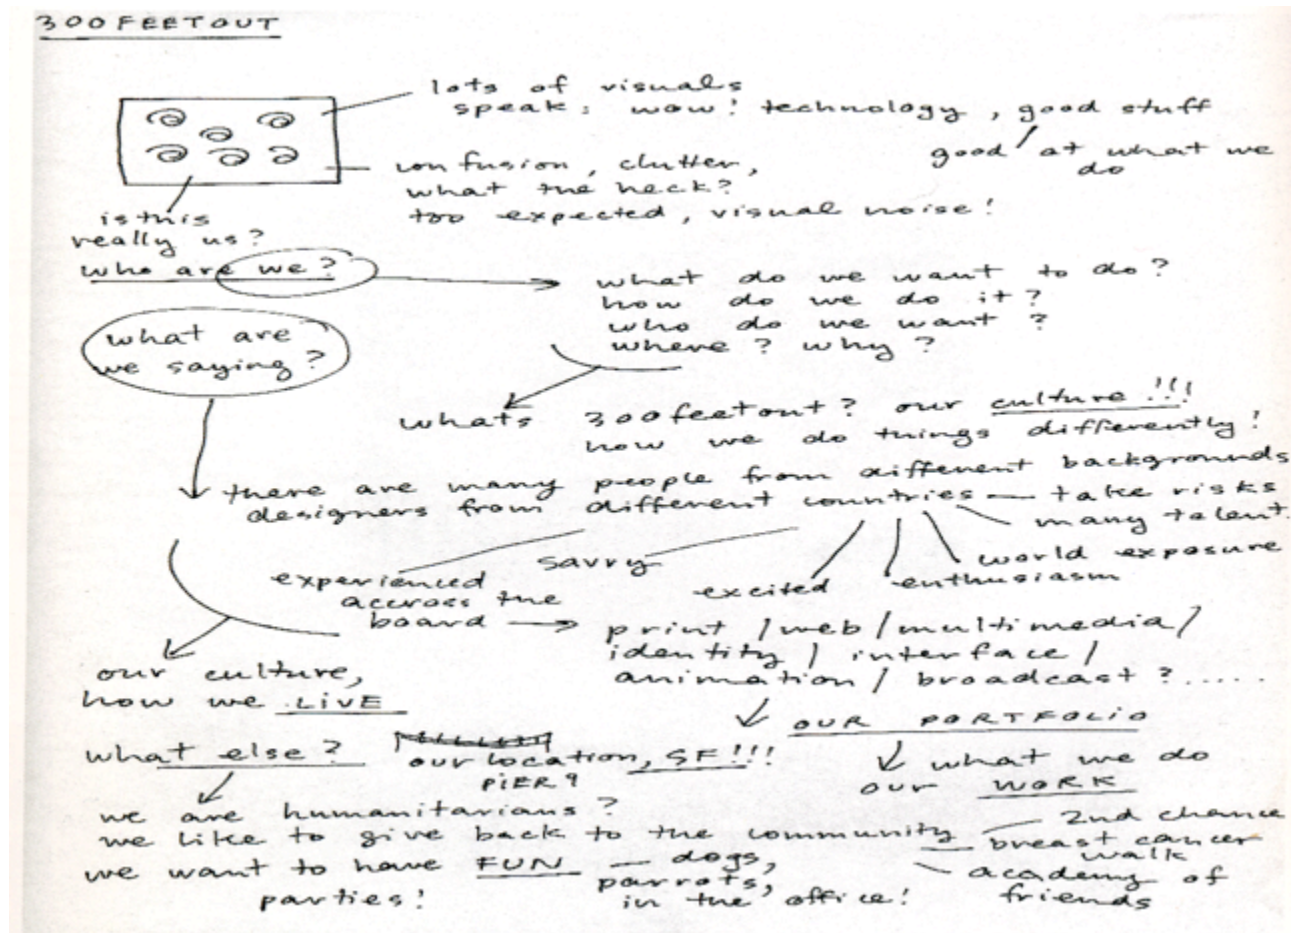 300FEETOUT
lots of visuals
speak: wow! technology, good stuff
good at what we
do
confusion, clutter,
what the heck?
too expected, visual noise!
is this
really us?
who are we?
what do we want to do?
how do we do it?
who do we want?
where? why?
what are
we saying?
whats 300feetout? our culture!!!
how we do things differently!
there are many people from different backgrounds
designers from different countries — take risks
many talent
world exposure
enthusiasm
excited
savvy
experienced
accross the
board → print / web / multimedia /
identity / interface /
animation / broadcast?......
our culture,
how we LIVE
OUR PORTFOLIO
what we do
our WORK
what else?
our location, SF!!!
PIER 9
we are humanitarians?
we like to give back to the community — 2nd chance
breast cancer
walk
academy of
friends
we want to have FUN — dogs,
parrots,
in the office!
parties!